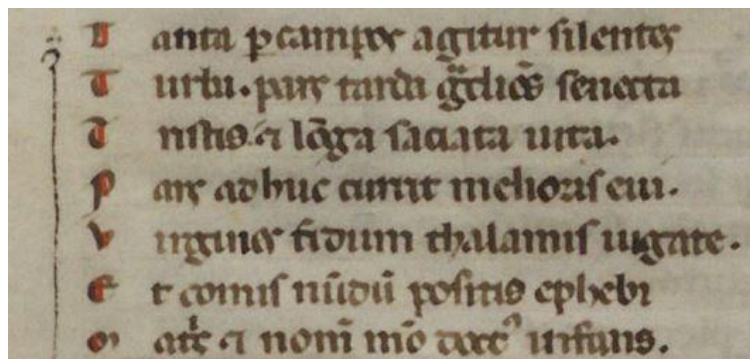 T anta ꝑ campos agitur silentes
T urba. pars tarda gͣdiēs senecta
T ristis ⁊ lōga saciata uita.
P ars adhuc currit melioris eui.
V irgines n̄dum thalamis iugate.
E t comis nūdū positis ephebi
M atͥs ⁊ nom̄ mō doctꝰ infans.